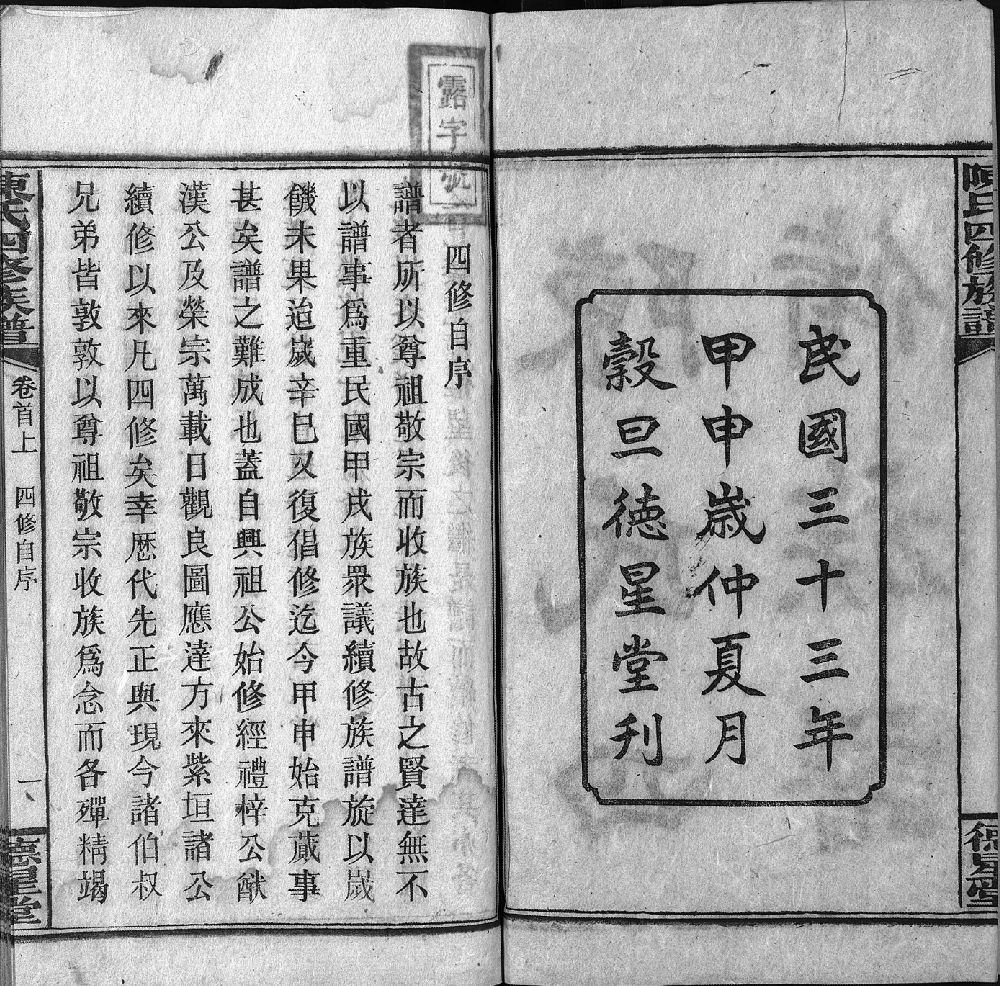 陳氏四修族譜
德星堂
民國三十三年
甲申歲仲夏月
穀旦德星堂刊
露字號
四修自序
譜者所以尊祖敬宗而收族也故古之賢達無不
以譜事爲重民國甲戌族衆議續修族譜旋以歲
饑未果迨歲辛巳又復倡修迄今甲申始克蕆事
甚矣譜之難成也蓋自興祖公始修經禮梓公猷
漢公及榮宗萬載日觀良圖應達方來紫垣諸公
續修以來凡四修矣幸歷代先正與現今諸伯叔
兄弟皆敦敦以尊祖敬宗收族爲念而各殫精竭
陳氏四修族譜
卷首上
四修自序
一
德星堂